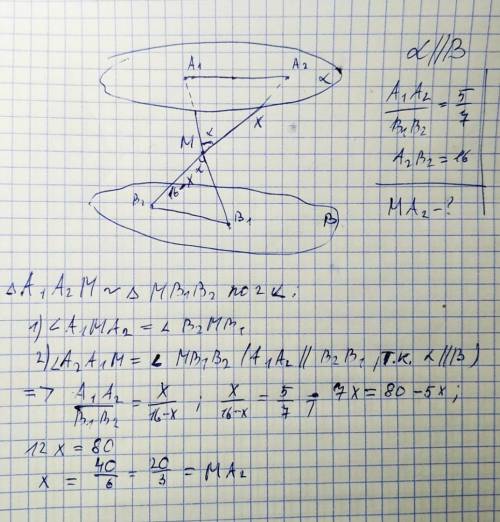 A₁ A₂ α
α//B
A₁A₂/B₁B₂ = 5/7
A₂B₂ = 16
MA₂ - ?
M α x
α
16-x
B₂ B₁ B
△A₁A₂M ~ △MB₁B₂ по 2∠:
1) ∠A₁MA₂ = ∠B₂MB₁
2) ∠A₂A₁M = ∠MB₁B₂ (A₁A₂ // B₂B₁, т.к. α//B)
=> A₁A₂/B₁B₂ = x/16-x ; x/16-x = 5/7 ; 7x = 80 - 5x;
12x = 80
x = 40/6 = 20/3 = MA₂